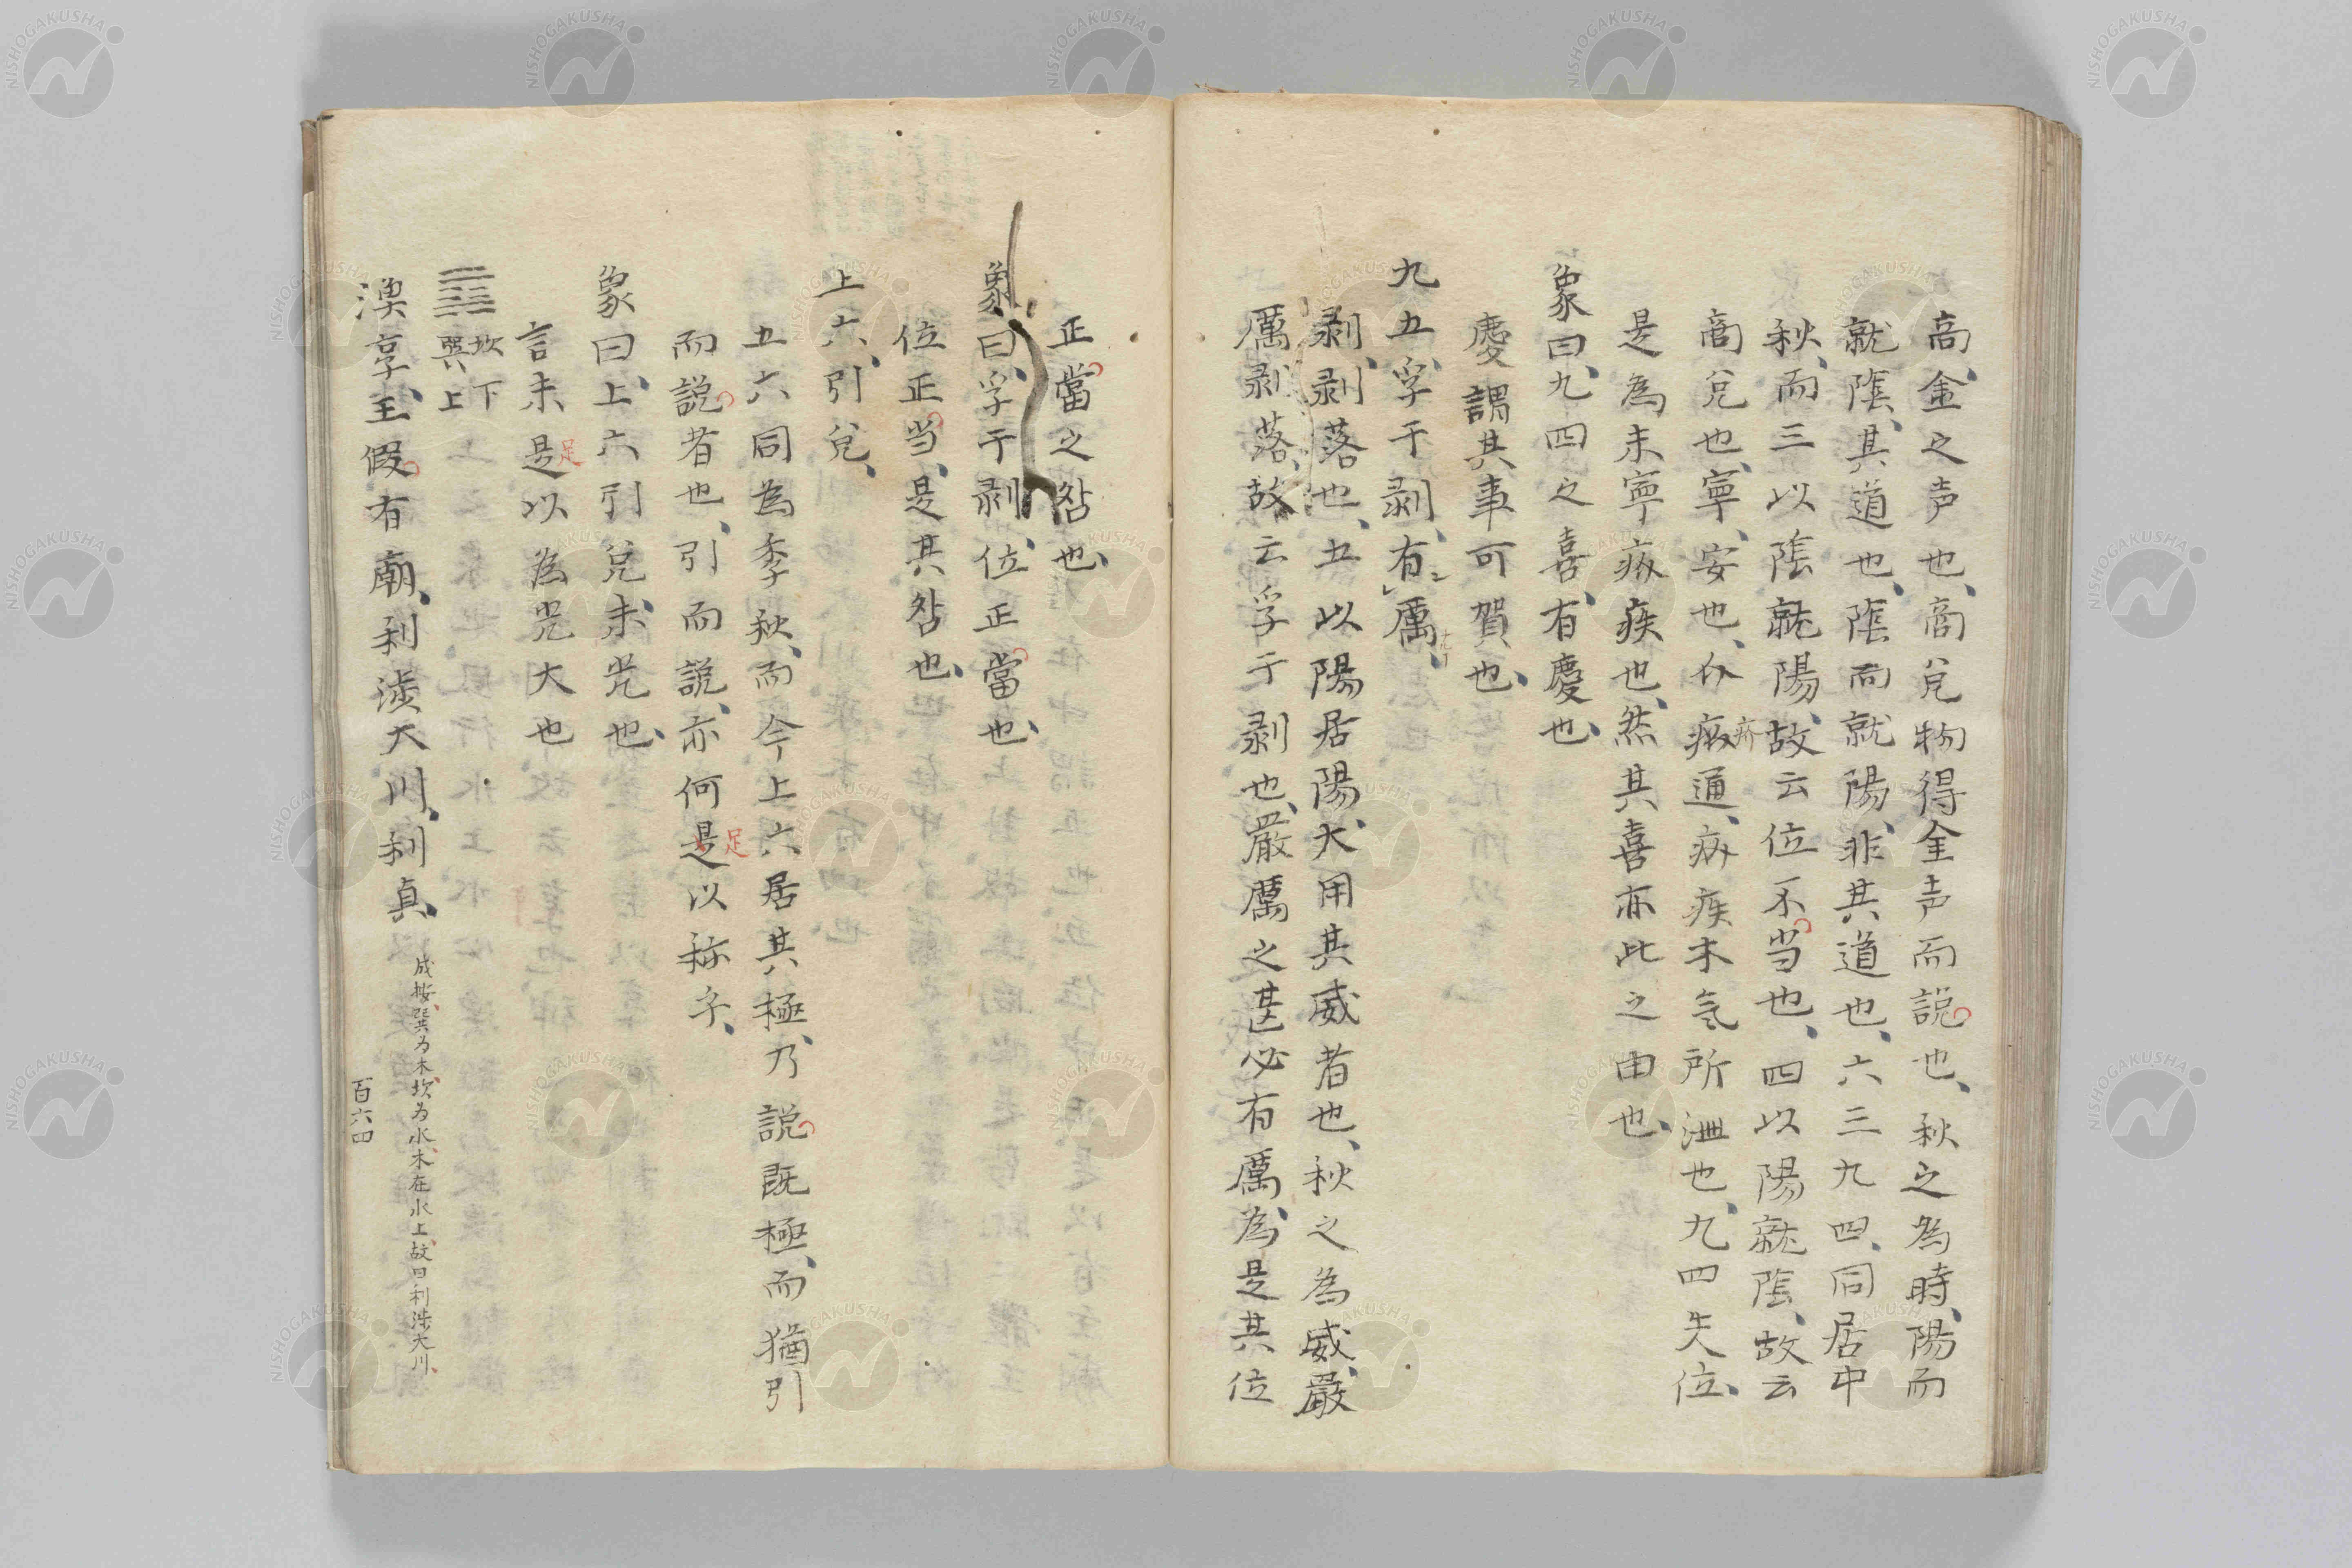 商、金之声也、商兌物得金声而説也、秋之為時、陽而
就陰、其道也、陰而就陽、非其道也、六三九四、同居中
秋、而三以陰就陽、故云位不当也、四以陽就陰、故云
商兌也、寧、安也、介疥通、疥疾木气所泄也、九四失位、
是為未寧疾也、然其喜亦此之由也、
象曰、九四之喜、有慶也、
慶謂其事可賀也、
九五、孚于剥、有厲、
剥、剥落也、五以陽居陽、大用其威者也、秋之為威、嚴
厲剥落、故云孚于剥也、嚴厲之甚必有厲、為是其位
正當之咎也、
象曰、孚于剥、位正當也、
位正当、是其咎也、
上六、引兌、
五六同為季秋、而今上六居其極、乃説既極、而猶引
而説者也、引而説、亦何足以称乎、
象曰、上六引兌、未光也、
言未足以為光大也
坎下
巽上
渙亨、王假有廟、利渉大川、利貞、
成按、巽為木、坎為水、木在水上、故曰利渉大川、
百六四
NISHOGAKUSHA